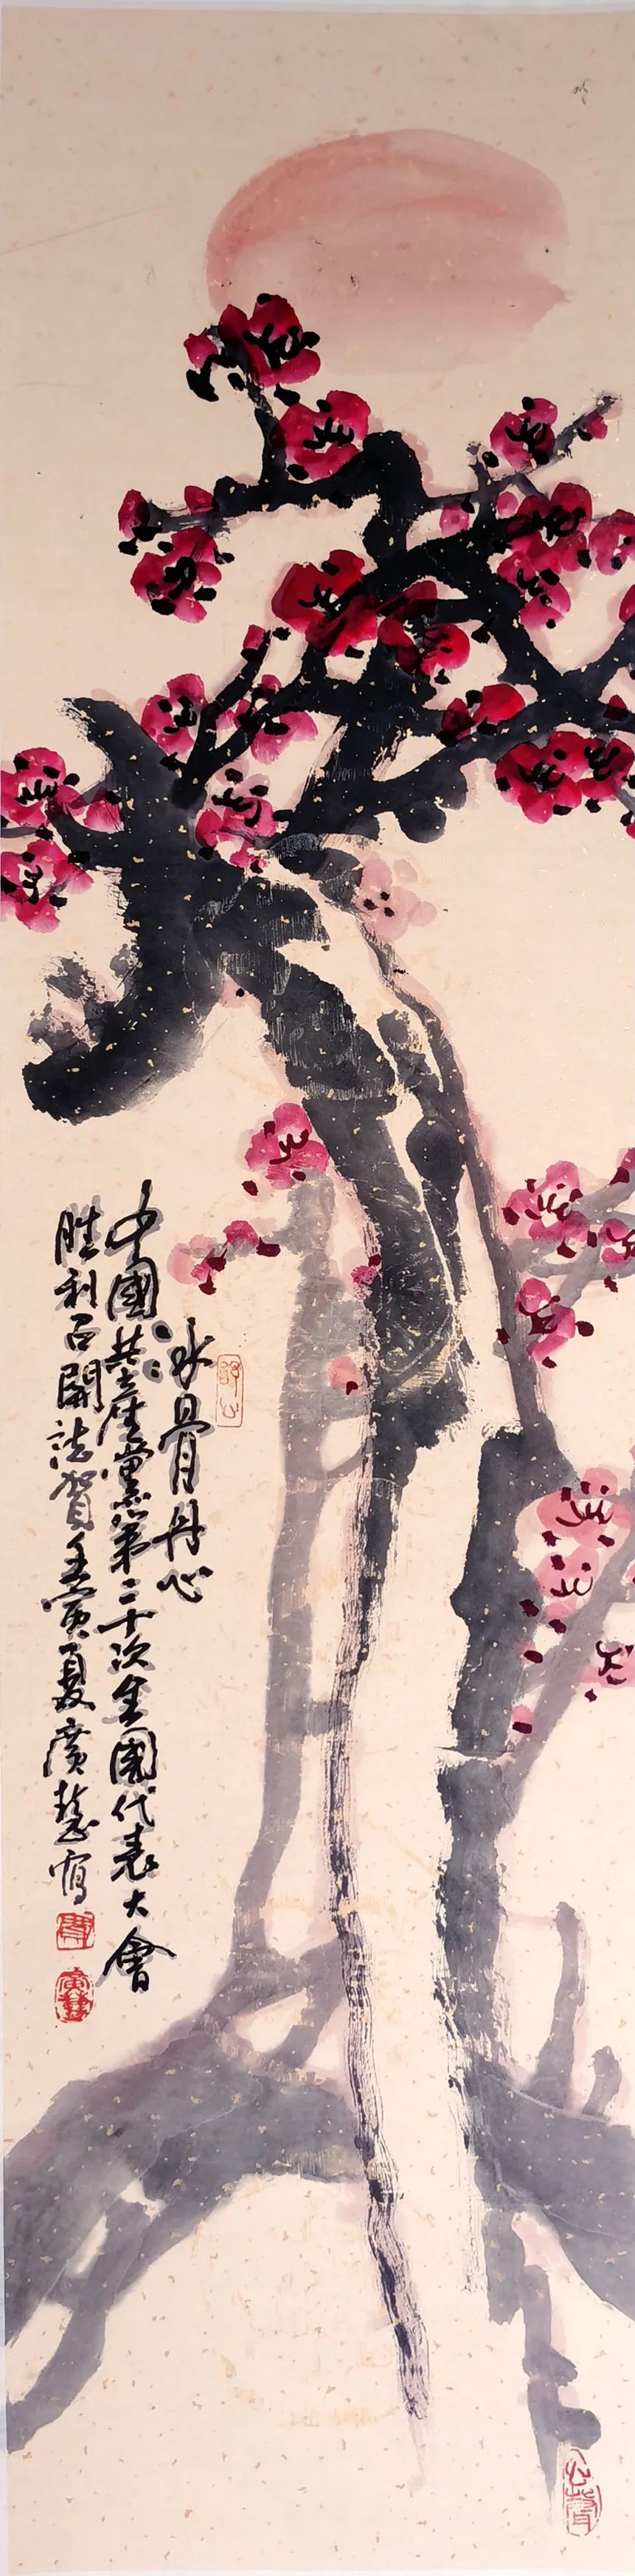 冰骨丹心
中國共產黨第二十次全國代表大會
勝利召開誌賀壬寅夏廣慧寫
心聲